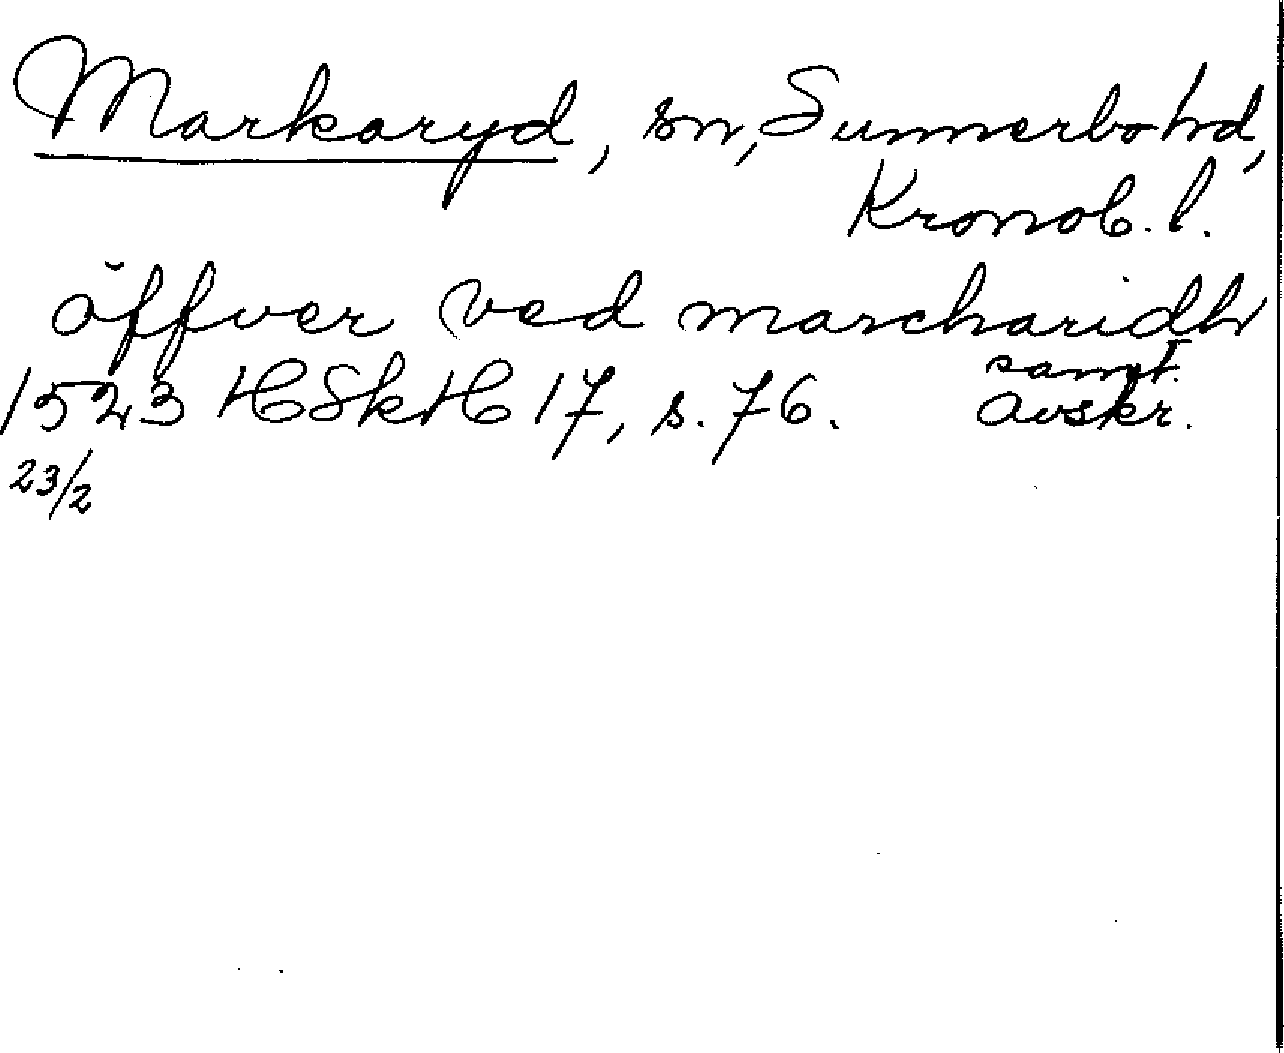 Markaryd, sn, Sunnerbo hd,
Kronob. l.
öffver ved marcharidh
samt.
1523 HSkH 17, s. 76. avskr.
23/2